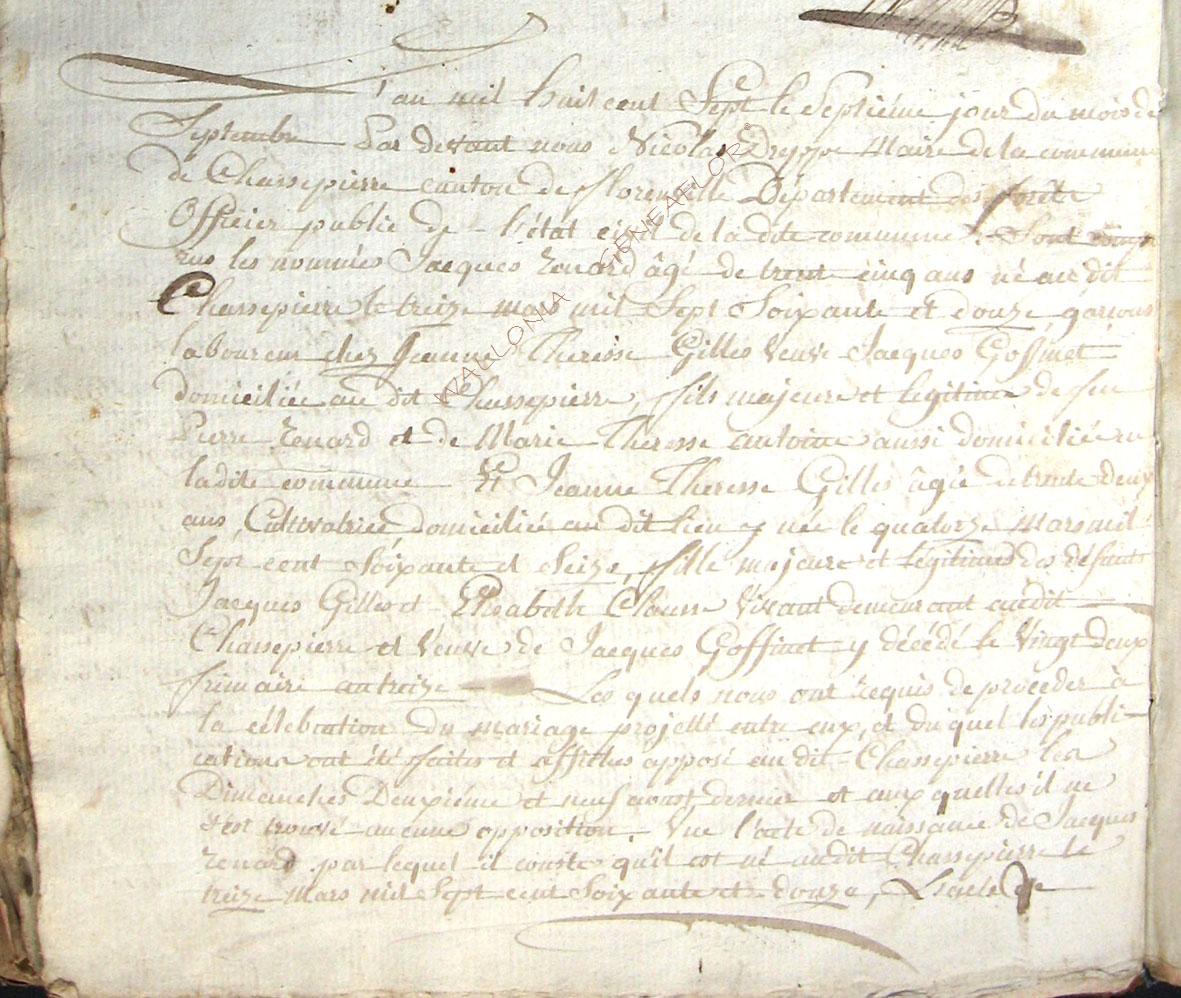 L'an mil huit cent Sept le Septiéme jour du mois de
Septembre Par devant nous Nicolas Dreppe Maire de la commune
de Chassepierre canton de florenville Département des forêts
Officier public de l'état civil de la dite commune Sont compa
rus les nommés Jacques Renard âgé de trente cinq ans né au dit
Chassepierre le treize mars mil Sept Soixante et douze, garcons
laboureur chez Jeanne Theresse Gilles veuve Jacques Goffinet
domiciliée au dit Chassepierre, fils majeure et légitime de feu
Pierre Renard et de Marie Theresse antoine aussi domiciliée en
ladite commune Et Jeanne Theresse Gilles âgée de trente deux
ans, Cultivatrice domiciliée au dit lieu y née le quatorze Mars mil
Sept cent Soixante et Seize, fille majeure et légitime des défunts
Jacques Gilles et Elisabeth Clausse vivant demeurant audit
Chassepierre et veuve de Jacques Goffinet y décédé le vingt deux
frimaire an treize Les quels nous ont requis de proceder à
la célébration du mariage projetté entre eux, et du quel les publi-
cations ont été faites et affiches apposé au dit Chassepierre les
Dimanches Deuxiéme et neuf aoust dernier et aux quelles il ne
s'est trouvé aucune opposition. Vue l'acte de naissance de Jacques
Renard par lequel il conste qu'il est né audit Chassepierre le
treize Mars mil Sept cent Soixante et douze, L'acte de
WALLONIA GENEAFLOR